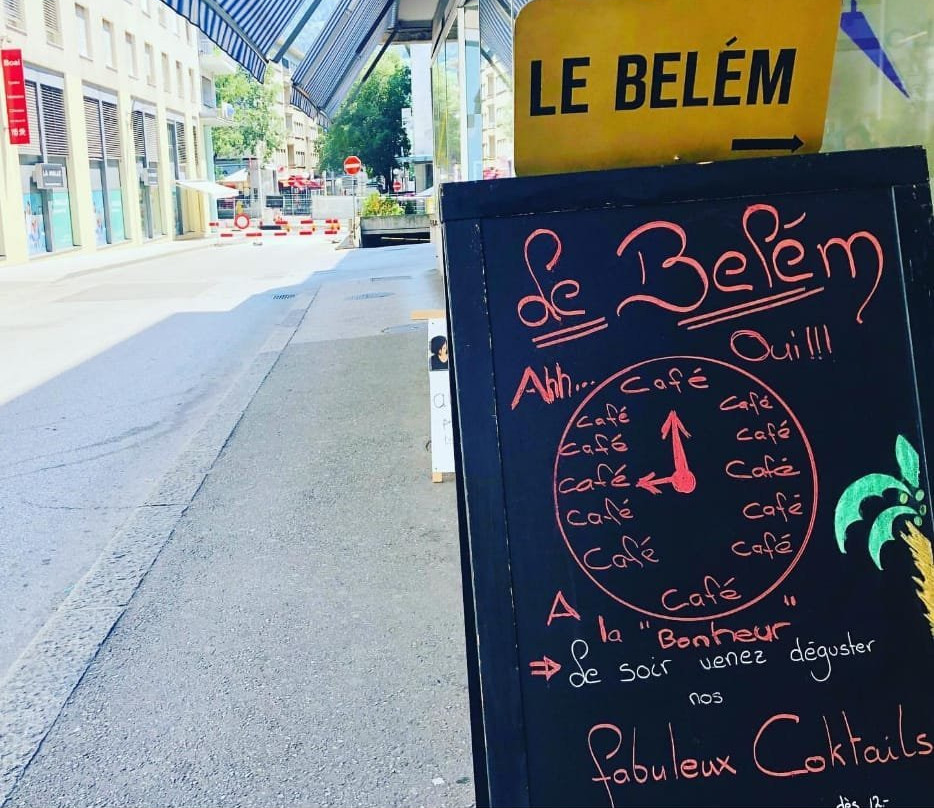 LE BELÉM
Le Belém
Oui!!!
Ahh...
Café
Café
Café
Café
Café
Café
Café
Café
Café
Café
Café
Café
A la "Bonheur"
Le soir venez déguster
nos
fabuleux Coktails
dès 12.-